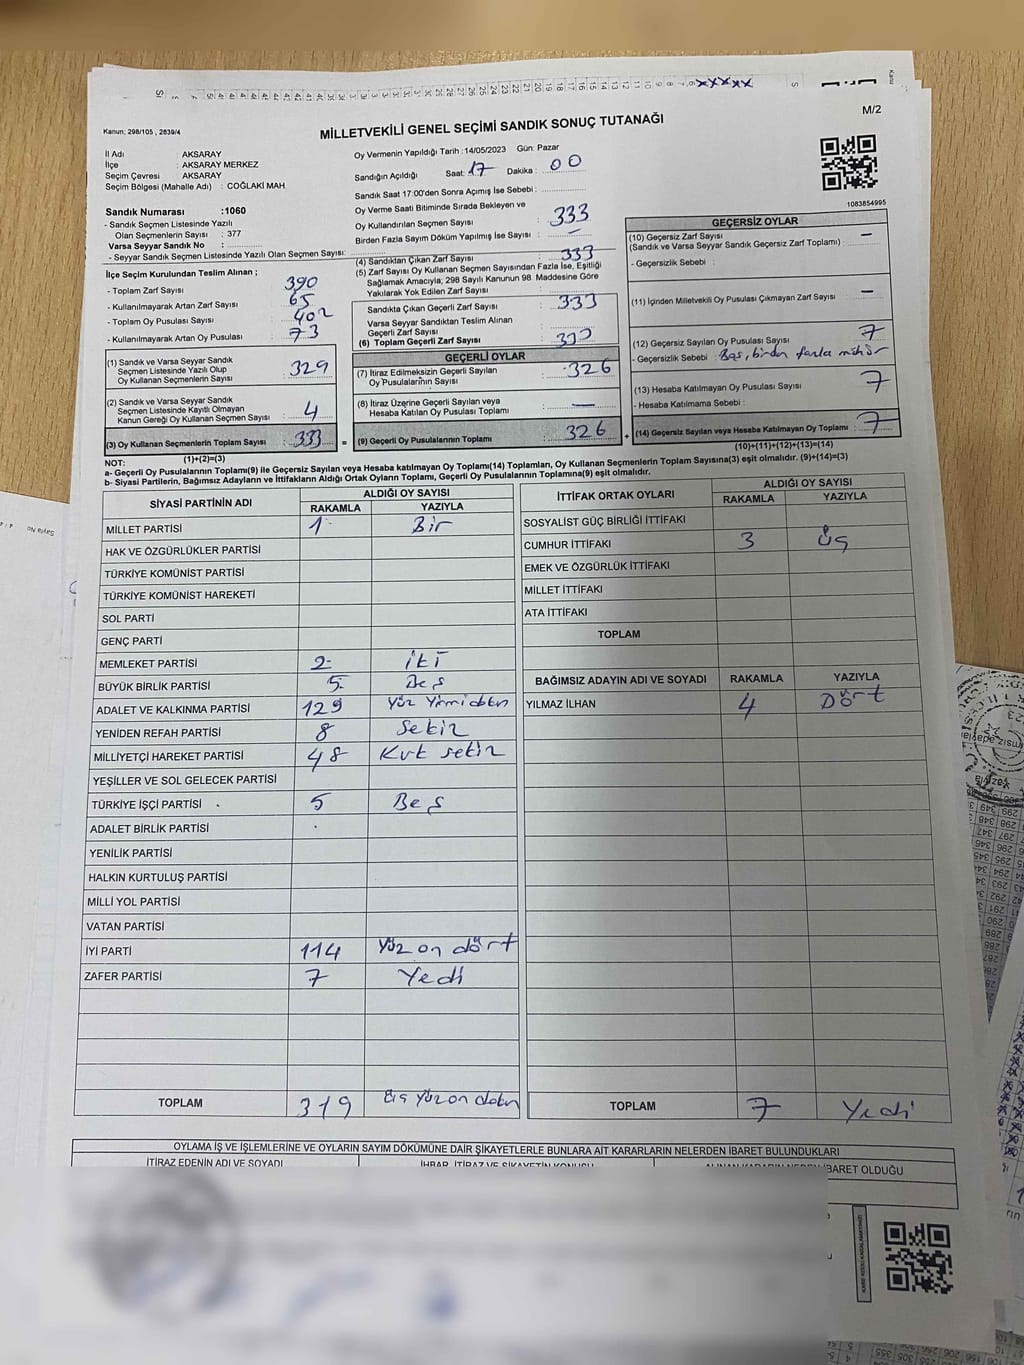 M/2
Kanun: 298/105 , 2839/4
MİLLETVEKİLİ GENEL SEÇİMİ SANDIK SONUÇ TUTANAĞI
İl Adı : AKSARAY
İlçe : AKSARAY MERKEZ
Seçim Çevresi : AKSARAY
Seçim Bölgesi (Mahalle Adı) : COĞLAKİ MAH
Sandık Numarası :1060
- Sandık Seçmen Listesinde Yazılı
Olan Seçmenlerin Sayısı : 377
Varsa Seyyar Sandık No :
- Seyyar Sandık Seçmen Listesinde Yazılı Olan Seçmen Sayısı:
İlçe Seçim Kurulundan Teslim Alınan ;
- Toplam Zarf Sayısı : 390
- Kullanılmayarak Artan Zarf Sayısı : 65
- Toplam Oy Pusulası Sayısı : 402
- Kullanılmayarak Artan Oy Pusulası : 73
(1) Sandık ve Varsa Seyyar Sandık
Seçmen Listesinde Yazılı Olup
Oy Kullanan Seçmenlerin Sayısı : 329
(2) Sandık ve Varsa Seyyar Sandık
Seçmen Listesinde Kayıtlı Olmayan
Kanun Gereği Oy Kullanan Seçmen Sayısı : 4
(3) Oy Kullanan Seçmenlerin Toplam Sayısı : 333
(1)+(2)=(3)
Oy Vermenin Yapıldığı Tarih :14/05/2023 Gün: Pazar
Sandığın Açıldığı Saat: 17 Dakika : 00
Sandık Saat 17:00'den Sonra Açımış İse Sebebi :
Oy Verme Saati Bitiminde Sırada Bekleyen ve
Oy Kullandırılan Seçmen Sayısı : 333
Birden Fazla Sayım Döküm Yapılmış İse Sayısı : —
(4) Sandıktan Çıkan Zarf Sayısı : 333
(5) Zarf Sayısı Oy Kullanan Seçmen Sayısından Fazla İse, Eşitliği
Sağlamak Amacıyla; 298 Sayılı Kanunun 98. Maddesine Göre
Yakılarak Yok Edilen Zarf Sayısı :
Sandıkta Çıkan Geçerli Zarf Sayısı : 333
Varsa Seyyar Sandıktan Teslim Alınan
Geçerli Zarf Sayısı :
(6) Toplam Geçerli Zarf Sayısı : 333
GEÇERLİ OYLAR
(7) İtiraz Edilmeksizin Geçerli Sayılan
Oy Pusulalarının Sayısı : 326
(8) İtiraz Üzerine Geçerli Sayılan veya
Hesaba Katılan Oy Pusulası Toplamı : —
= (9) Geçerli Oy Pusulalarının Toplamı : 326 +
1083854995
GEÇERSİZ OYLAR
(10) Geçersiz Zarf Sayısı : —
(Sandık ve Varsa Seyyar Sandık Geçersiz Zarf Toplamı)
- Geçersizlik Sebebi :
(11) İçinden Milletvekili Oy Pusulası Çıkmayan Zarf Sayısı : —
(12) Geçersiz Sayılan Oy Pusulası Sayısı : 7
- Geçersizlik Sebebi : Boş, birden fazla mühür
(13) Hesaba Katılmayan Oy Pusulası Sayısı : 7
- Hesaba Katılmama Sebebi :
(14) Geçersiz Sayılan veya Hesaba Katılmayan Oy Toplamı : 7
(10)+(11)+(12)+(13)=(14)
NOT:
a- Geçerli Oy Pusulalarının Toplamı(9) ile Geçersiz Sayılan veya Hesaba katılmayan Oy Toplamı(14) Toplamları, Oy Kullanan Seçmenlerin Toplam Sayısına(3) eşit olmalıdır. (9)+(14)=(3)
b- Siyasi Partilerin, Bağımsız Adayların ve İttifakların Aldığı Ortak Oyların Toplamı, Geçerli Oy Pusulalarının Toplamına(9) eşit olmalıdır.
SİYASİ PARTİNİN ADI ALDIĞI OY SAYISI
RAKAMLA YAZIYLA
MİLLET PARTİSİ 1 Bir
HAK VE ÖZGÜRLÜKLER PARTİSİ
TÜRKİYE KOMÜNİST PARTİSİ
TÜRKİYE KOMÜNİST HAREKETİ
SOL PARTİ
GENÇ PARTİ
MEMLEKET PARTİSİ 2 iki
BÜYÜK BİRLİK PARTİSİ 5 Beş
ADALET VE KALKINMA PARTİSİ 129 Yüz Yirmidokuz
YENİDEN REFAH PARTİSİ 8 Sekiz
MİLLİYETÇİ HAREKET PARTİSİ 48 Kırk sekiz
YEŞİLLER VE SOL GELECEK PARTİSİ
TÜRKİYE İŞÇİ PARTİSİ 5 Beş
ADALET BİRLİK PARTİSİ
YENİLİK PARTİSİ
HALKIN KURTULUŞ PARTİSİ
MİLLİ YOL PARTİSİ
VATAN PARTİSİ
İYİ PARTİ 114 Yüz on dört
ZAFER PARTİSİ 7 Yedi
TOPLAM 319 Üç Yüz on dokuz
İTTİFAK ORTAK OYLARI ALDIĞI OY SAYISI
RAKAMLA YAZIYLA
SOSYALİST GÜÇ BİRLİĞİ İTTİFAKI
CUMHUR İTTİFAKI 3 Üç
EMEK VE ÖZGÜRLÜK İTTİFAKI
MİLLET İTTİFAKI
ATA İTTİFAKI
TOPLAM
BAĞIMSIZ ADAYIN ADI VE SOYADI RAKAMLA YAZIYLA
YILMAZ İLHAN 4 Dört
TOPLAM 7 Yedi
OYLAMA İŞ VE İŞLEMLERİNE VE OYLARIN SAYIM DÖKÜMÜNE DAİR ŞİKAYETLERLE BUNLARA AİT KARARLARIN NELERDEN İBARET BULUNDUKLARI
İTİRAZ EDENİN ADI VE SOYADI İHBAR, İTİRAZ VE ŞİKAYETİN KONUSU ALINAN KARARIN NEDEN İBARET OLDUĞU